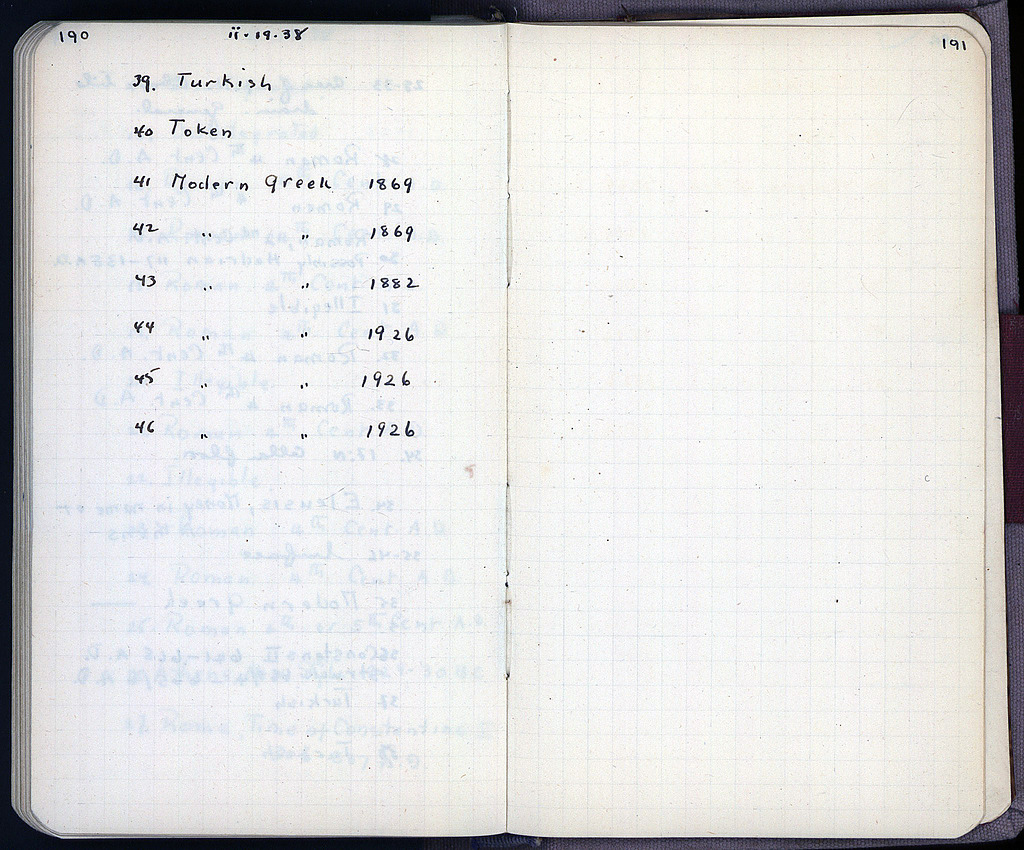 190
ii-19-38
39. Turkish
40 Token
41 Modern Greek 1869
42 " " 1869
43 " " 1882
44 " " 1926
45 " " 1926
46 " " 1926
191